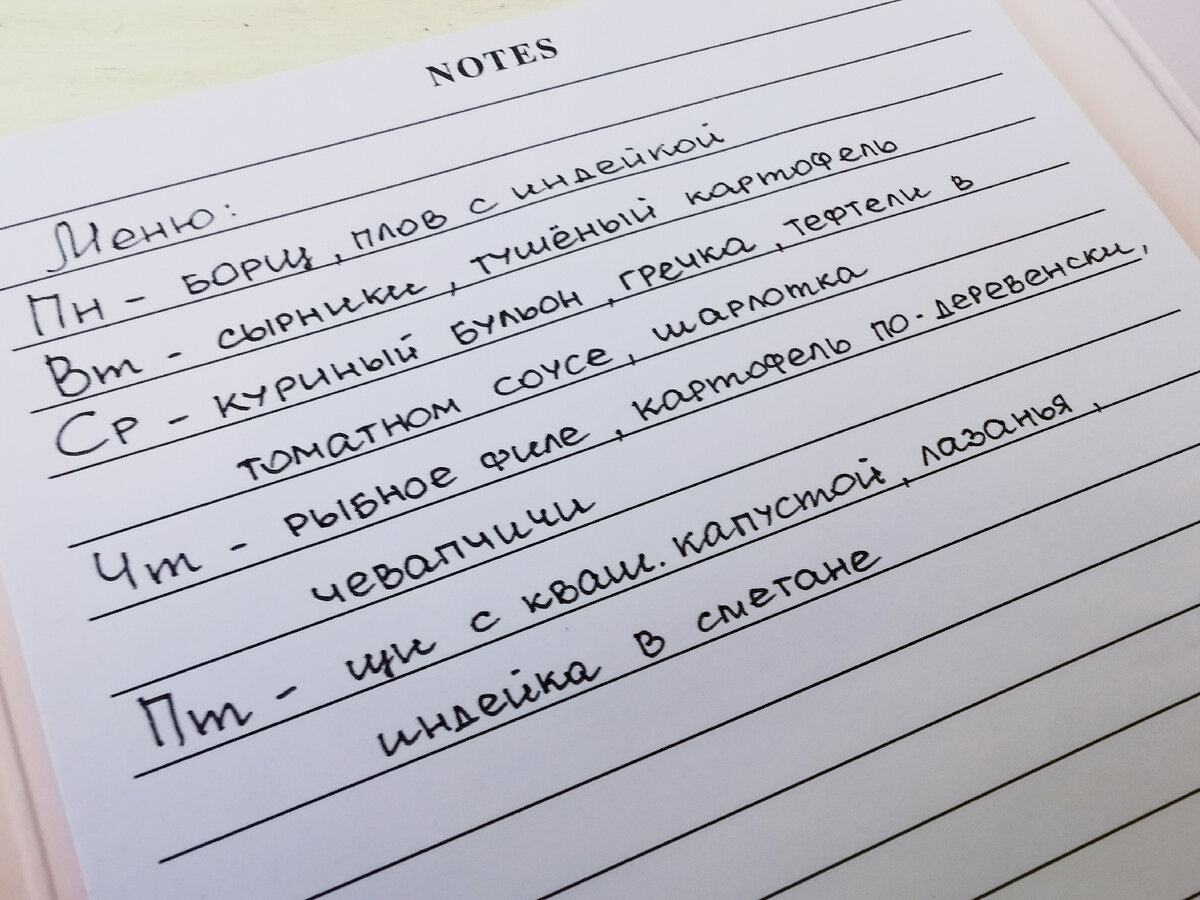 NOTES
Меню:
Пн - борщ, плов с индейкой
Вт - сырники, тушёный картофель
Ср - куриный бульон, гречка, тефтели в
томатном соусе, шарлотка
Чт - рыбное филе, картофель по-деревенски,
чевапчичи
Пт - щи с кваш. капустой, лазанья,
индейка в сметане